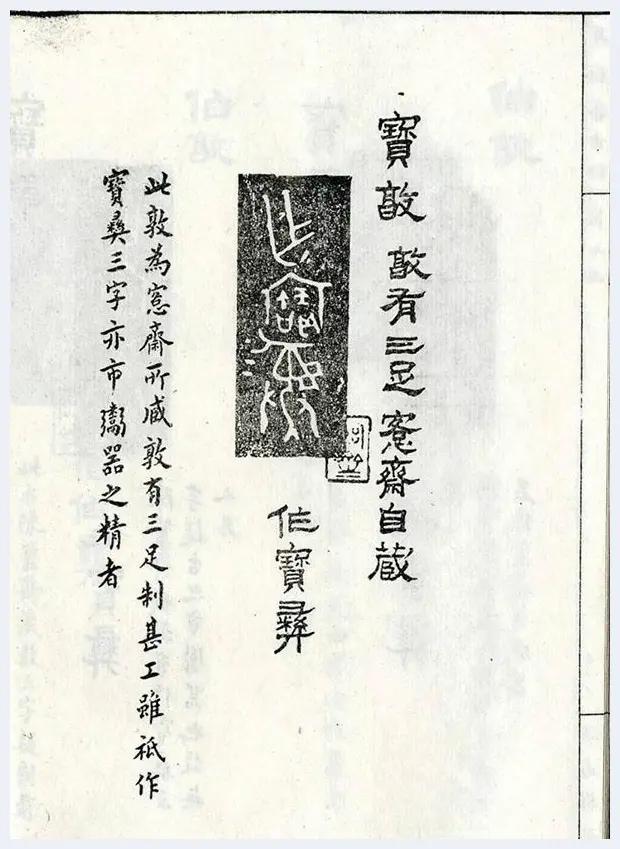 寶敦 敦有三足愙齋自藏
乍寶彝
作寶彝
此敦為愙齋所藏敦有三足制甚工雖祇作
寶彝三字亦市鬻器之精者